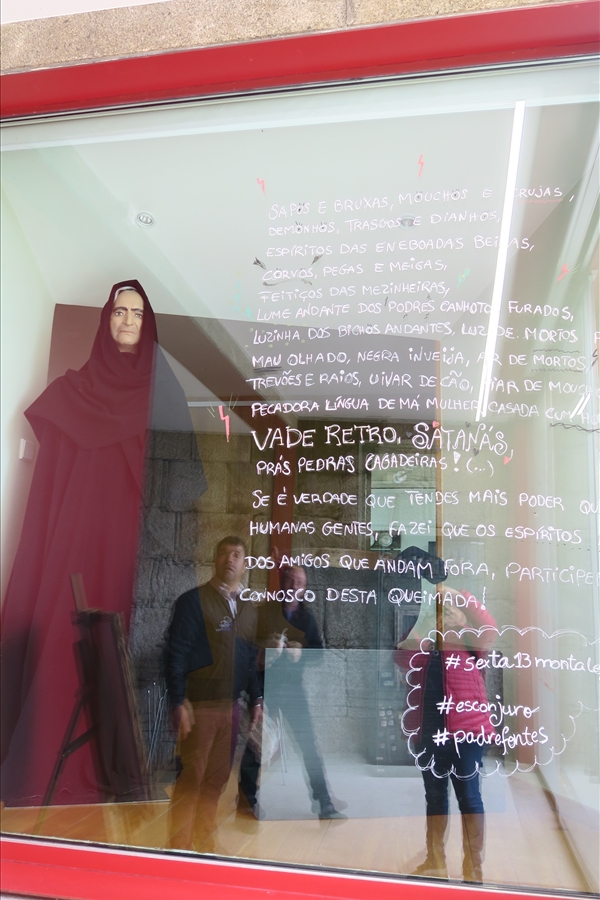 SAPOS E BRUXAS, MOUCHOS E CRUJAS,
DEMONHOS, TRASGOS E DIANHOS,
ESPÍRITOS DAS ENEBOADAS BEIRAS,
CORVOS, PEGAS E MEIGAS,
FEITIÇOS DAS MEZINHEIRAS,
LUME ANDANTE DOS PODRES CANHOTOS FURADOS,
LUZINHA DOS BICHOS ANDANTES, LUZ DE MORTOS
MAU OLHADO, NEGRA INVEIJA, AR DE MORTOS,
TREVÕES E RAIOS, UIVAR DE CÃO, PIAR DE
PECADORA LÍNGUA DE MÁ MULHER CASADA
VADE RETRO, SATANÁS,
PRÁS PEDRAS CAGADEIRAS! (...)
SE É VERDADE QUE TENDES MAIS PODER
HUMANAS GENTES, FAZEI QUE OS ESPÍRITOS
DOS AMIGOS QUE ANDAM FORA,
CONNOSCO DESTA QUEIMADA!
#sexta13
#esconjuro
#padrefontes